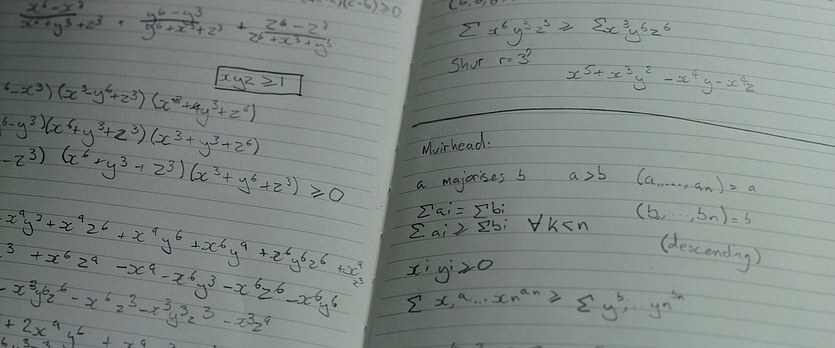 -6) ≥0
x⁶-x³/x⁶+y³+z³ + y⁶-y³/y⁶+x³+z³ + z⁶-z³/z⁶+x³+y³
xyz≥1
⁶-x³)(x³+y⁶+z³)(x³+y³+z⁶)
⁶-y³)(x⁶+y³+z³)(x³+y³+z⁶)
-z³) (x⁶+y³+z³)(x³+y⁶+z³) ≥0
x⁹y³+x⁹z⁶+x⁹y⁶+x⁶y⁹+z⁶y⁶z⁶
³+x⁶z⁹-x⁹-x⁶y³-x⁶z⁶-x⁶y⁶
-x³y⁶z⁶-x⁶z³-x³y³z³-x³z⁹
+2x⁹y⁶ + x⁹
∑x⁶y³z³ ≥ ∑x³y⁶z⁶
Shur r=3?
x⁵+x³y²-x⁴y-x⁴z
Muirhead:
a majorises b a>b (a,....,an)=a
∑ai=∑bi (b,..,bn)=b
∑ai≥∑bi ∀k<n
(descending)
xi yi≥0
∑x,ᵃ...xnᵃⁿ≥∑yᵇ,..ynᵇⁿ